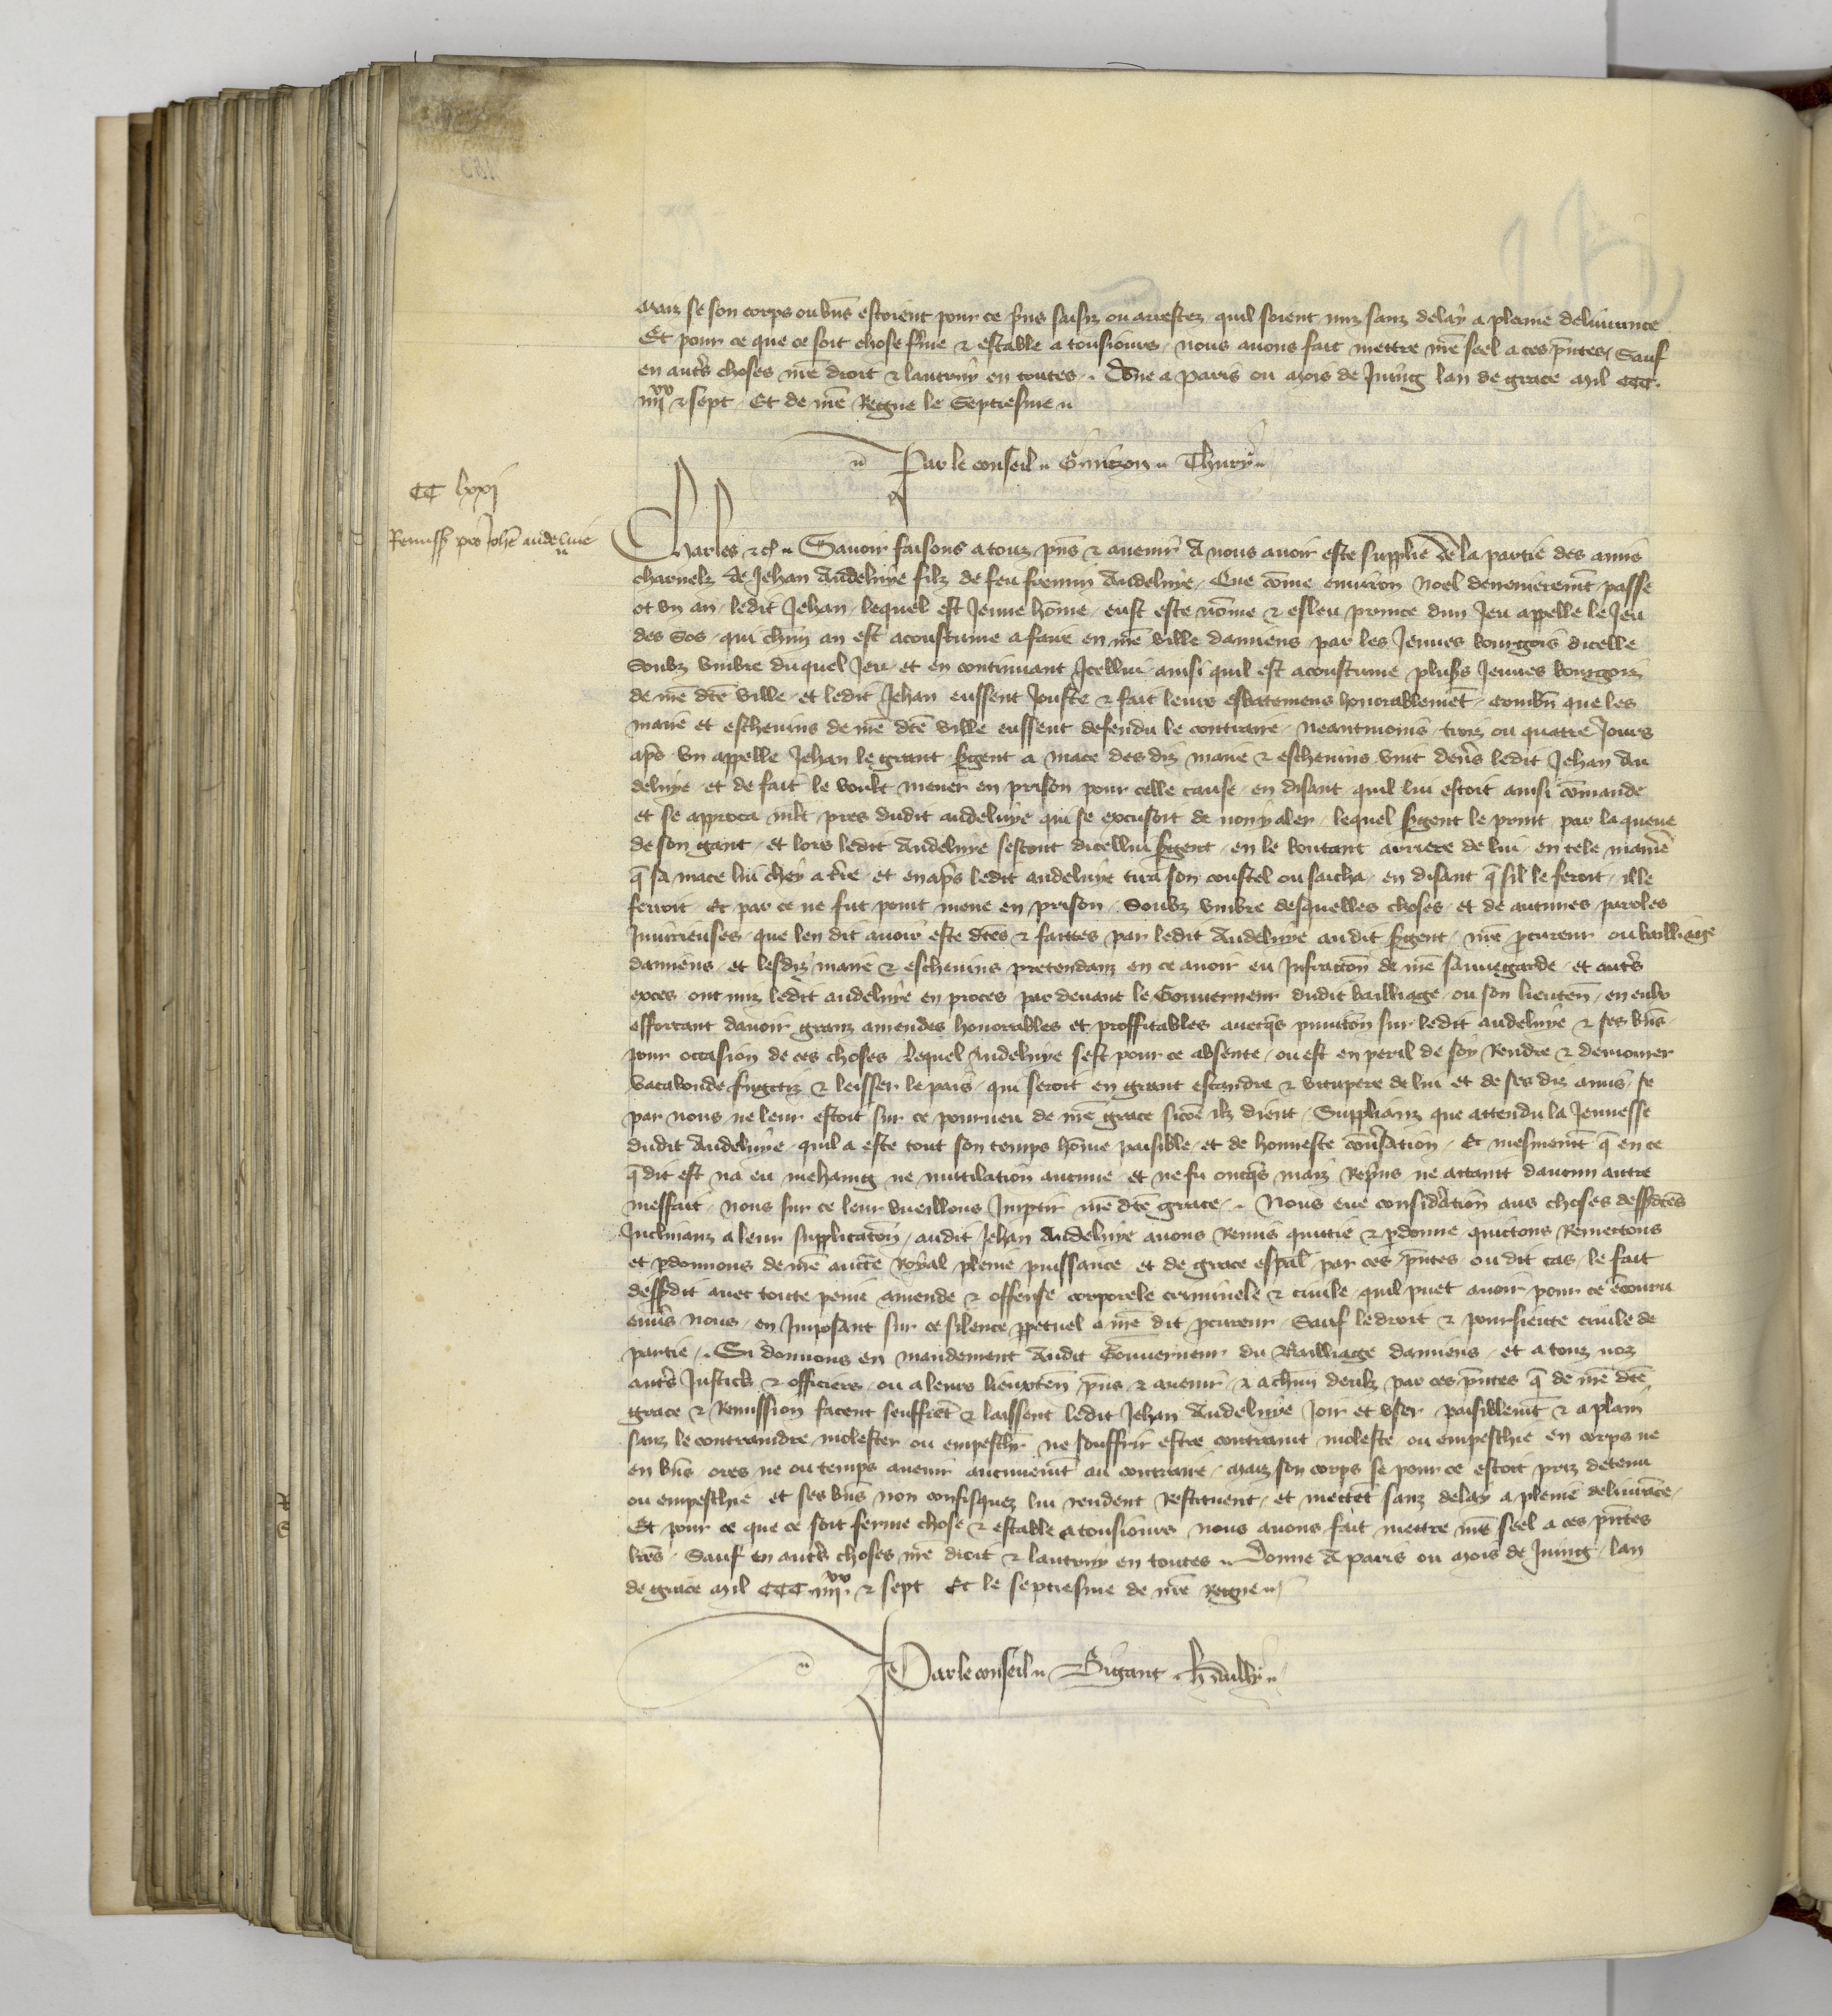 Maiz se son corps ou bn̄s estoient pour ce pñs saisiz ou arrestez quil soient miz sanz delay a pleine deliurance
Et pour ce que ce soit chose ferme & estable a tousiours nous auons fait mettre nr̄e seel a ces p̄ntes Sauf
en autr̄s choses nr̄e droit & lautruy en toutes Dōne a paris ou mois de Juing lan de grace mil CCC
iiijxx & sept Et de nr̄e Regne le Septiesme
Par le conseil Thury
CC lxxj
Remissio pro Joh̄e andeluie
Charles &c̄ Sauoir faisons a touz pn̄s & auenir A nous auoir este supplie de la partie des amis
charnelz de Jehan Andeluye filz de feu fremin Andeluye Que cōme enuiron Noel derrenieremt̄ passe
ot vn an ledit Jehan lequel est Jeune hōme eust este nōme & esleu prince dun Jeu appelle le Jeu
des Sos qui chūn an est acoustume a faire en nr̄e ville damiens par les Jeunes bourgois dicelle
Soubz vmbre duquel Jeu et en continuant Jcellui ainsi quil est acoustume plus̄s Jeunes bourgois
de nr̄e dc̄e ville et ledit Jehan eussent Jouste & fait leurs esbatemens honorablemēt combn̄ que les
maire et escheuins de nr̄e dc̄e ville eussent defendu le contraire neantmoins troiz ou quatre Jours
apr̄s vn appelle Jehan le grant s̄gent a mace des diz maire & escheuins vint deūs ledit Jehan An
deluye et de fait le voult mener en prison pour celle cause en disant quil lui estoit ainsi cōmande
et se approca mlt̄ pres dudit andeluye qui se excusoit de non y aler lequel s̄gent le print par la queue
de son gant et lors ledit Andeluye sescout dicellui s̄gent en le boutant arriere de lui en tele manie̅
q̄ sa mace lui chey a tr̄e et enapr̄s ledit andeluye tira son coustel ou saicha en disant q̄ sil le feroit ille
ferroit Et par ce ne fut point mene en prison Soubz vmbre desquelles choses et de aucunes paroles
Jniurieuses que len dit auoir este dc̄es & faittes par ledit Andeluye audit s̄gent nr̄e p̄cureur ou bailliage
damiens et lesdiz maire & escheuins pretendanz en ce auoir eu Jnfraccōn de nr̄e sauuegarde et autr̄s
exces ont miz ledit andeluye en proces par deuant le Gouuerneur dudit bailliage ou son lieuten̄ en eulx
efforcant dauoir granz amendes honorables et proffitables auecqs̄ punicōn sur ledit andeluye & ses bn̄s
pour occasion de ces choses Lequel Andeluye sest pour ce absente ou est en peril de soy Rendre & demourer
vacabonde fuigitiz & leisser le pais qui seroit en grant esclandre & vitupere de lui et de ses diz amis se
par nous ne leur estoit sur ce pourueu de nr̄e grace sicōe ilz dient Supplianz que attendu la Jeunesse
dudit Andeluye quil a este tout son temps hōme paisible et de honneste cōuersation Et mesmemt̄ q̄ en ce
q̄ dit est na eu mehaing ne mutilation aucune et ne fu oncqs̄ maiz Repr̄ns ne attaint daucun autre
meffait nous sur ce leur vueillons Jmptir nr̄e dc̄e grace Nous eue considr̄ation aus choses dess̄dc̄es
Jnclinanz a leur supplicacōn audit Jehan Andeluye auons Remis quittie & p̄donne quictons Remectons
et p̄donnons de nr̄e auctc̄e Royal pleine puissance et de grace esp̄al par ces p̄ntes ou dit cas le fait
dess̄dit auec toute peine amende & offense corporele criminele & ciuile quil puet auoir pour ce encouru
enuers nous en Jmposant sur ce silence p̄petuel a nr̄e dit p̄cureur Sauf le droit & poursieute ciuile de
partie Si donnons en mandement Audit Gouuerneur du Bailliage damiens et a touz noz
autr̄s Justic̄s & officiers ou a leurs lieuxten̄ pn̄s & auenir & a chūn deulz par ces p̄ntes q̄ de nr̄e dc̄e
grace & Remission facent seuffrēt & laissent ledit Jehan Andeluye Joir et vser paisiblemt̄ & a plain
sanz le contraindre molester ou empesch̄r ne souffrir estre contraint moleste ou empeschie en corps ne
en bn̄s ores ne ou temps auenir aucunemt̄ au contraire Maiz son corps se pour ce estoit priz detenu
ou empeschie et ses bn̄s non confisquez lui rendent Restituent et mectēt sanz delay a pleine deliurāce
Et pour ce que ce soit ferme chose & estable a tousiours nous auons fait mettre nr̄e seel a ces p̄ntes
lr̄es Sauf en autr̄s choses nr̄e droit & lautruy en toutes Donne A paris ou mois de Juing lan
de grace mil CCC iiijxx & sept Et le septiesme de nr̄e Regne
Par le conseil Gigant